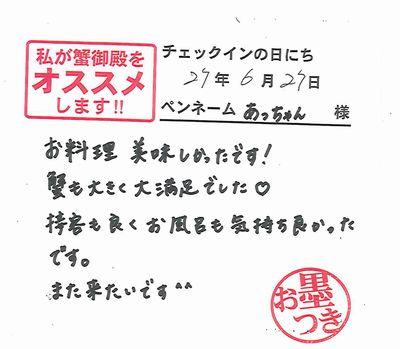 私が蟹御殿を
オススメ
します!!
チェックインの日にち
27年6月27日
ペンネーム あっちゃん 様
お料理 美味しかったです!
蟹も大きく大満足でした♡
接客も良くお風呂も気持ち良かった
です。
また来たいです^^
お墨
つき